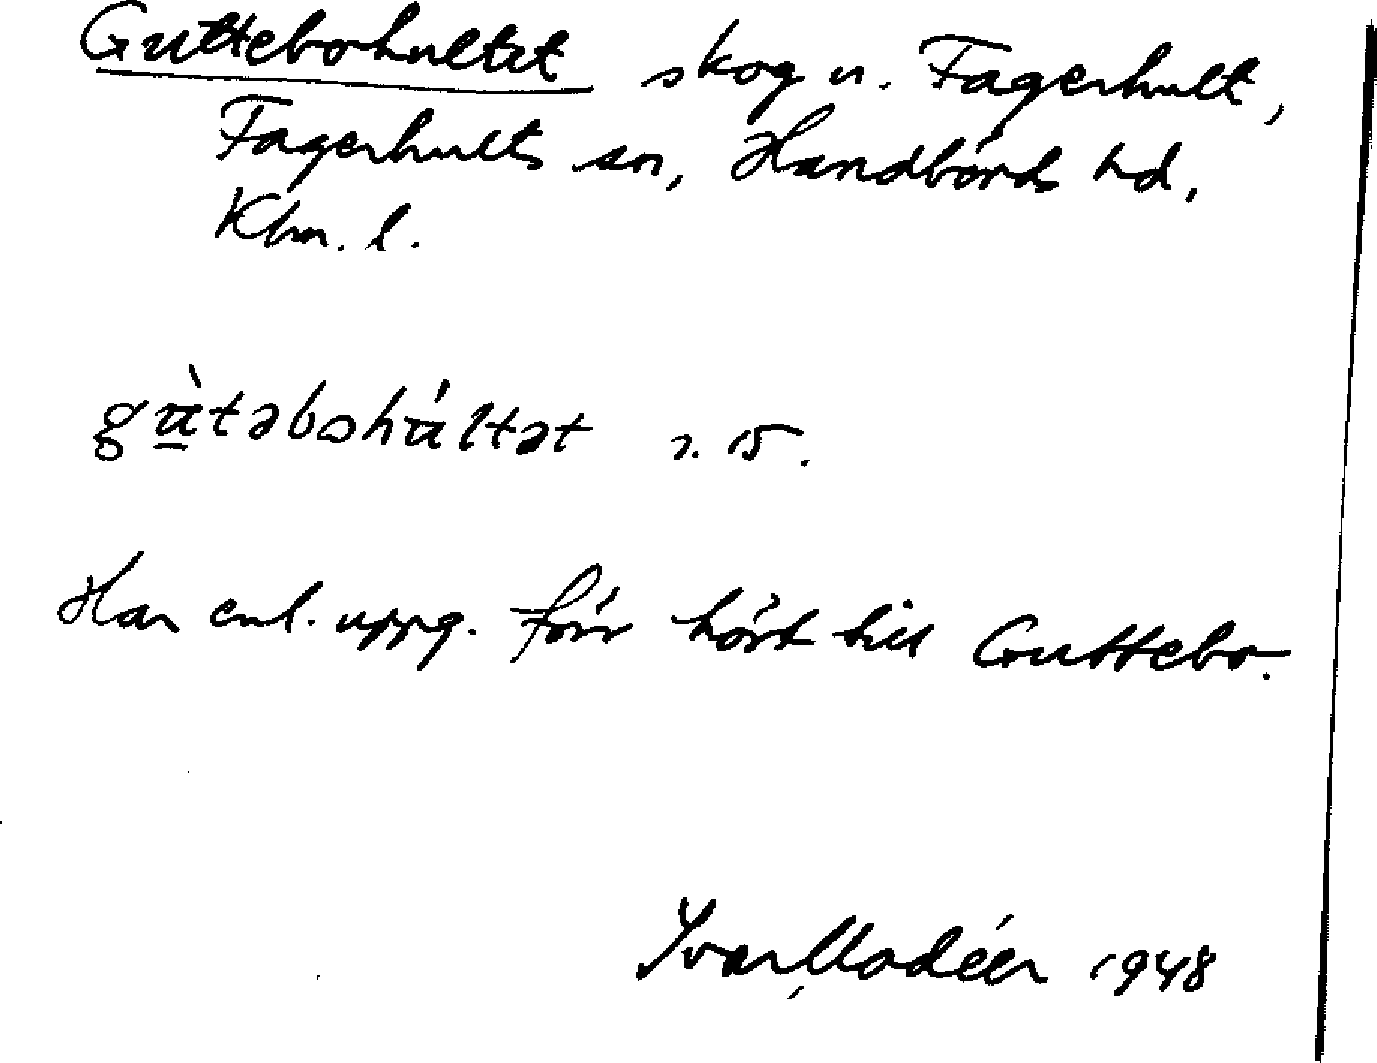 Guttebohultet skog u. Fagerhult,
Fagerhults sn, Handbörds hd,
Klm. l.
gù̲təbohúltət s. 15.
Har enl. uppg. förr hört till Guttebo.
Ivar Modéer 1948